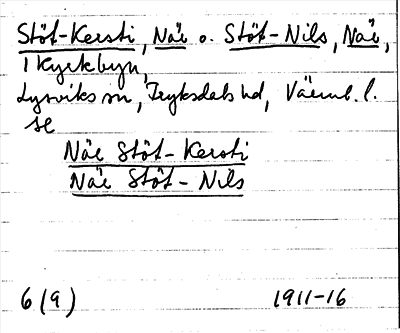 Stöt-Kersti, Näe o. Stöt-Nils, Näe,
i Kyrkbyn,
Lysviks sn, Fryksdals hd, Värml. l.
se
Näe Stöt-Kersti
Näe Stöt-Nils
6 (9) 1911-16